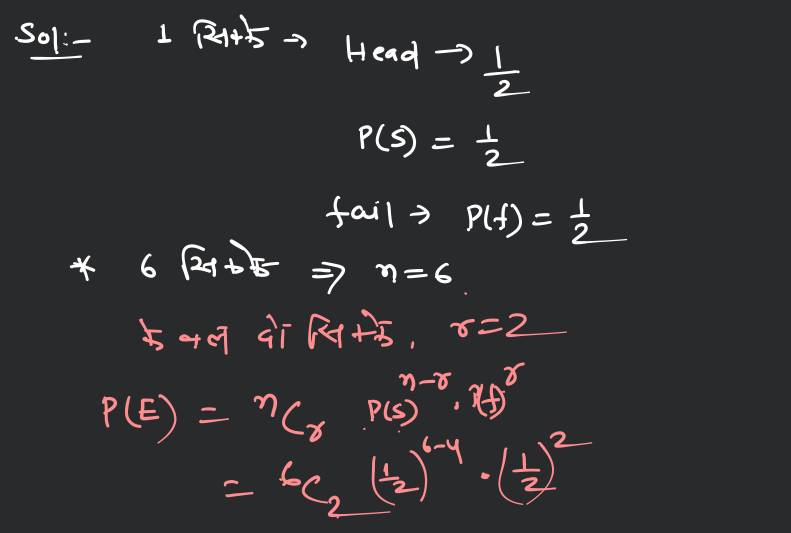 Sol:- 1 सिक्के → Head → 1/2
P(S) = 1/2
fail → P(f) = 1/2
* 6 सिक्के ⇒ n=6
केवल दो सिक्के, r=2
P(E) = ⁿCᵣ P(S)ⁿ⁻ʳ . P(f)ʳ
= ⁶C₂ (1/2)⁶⁻⁴ . (1/2)²